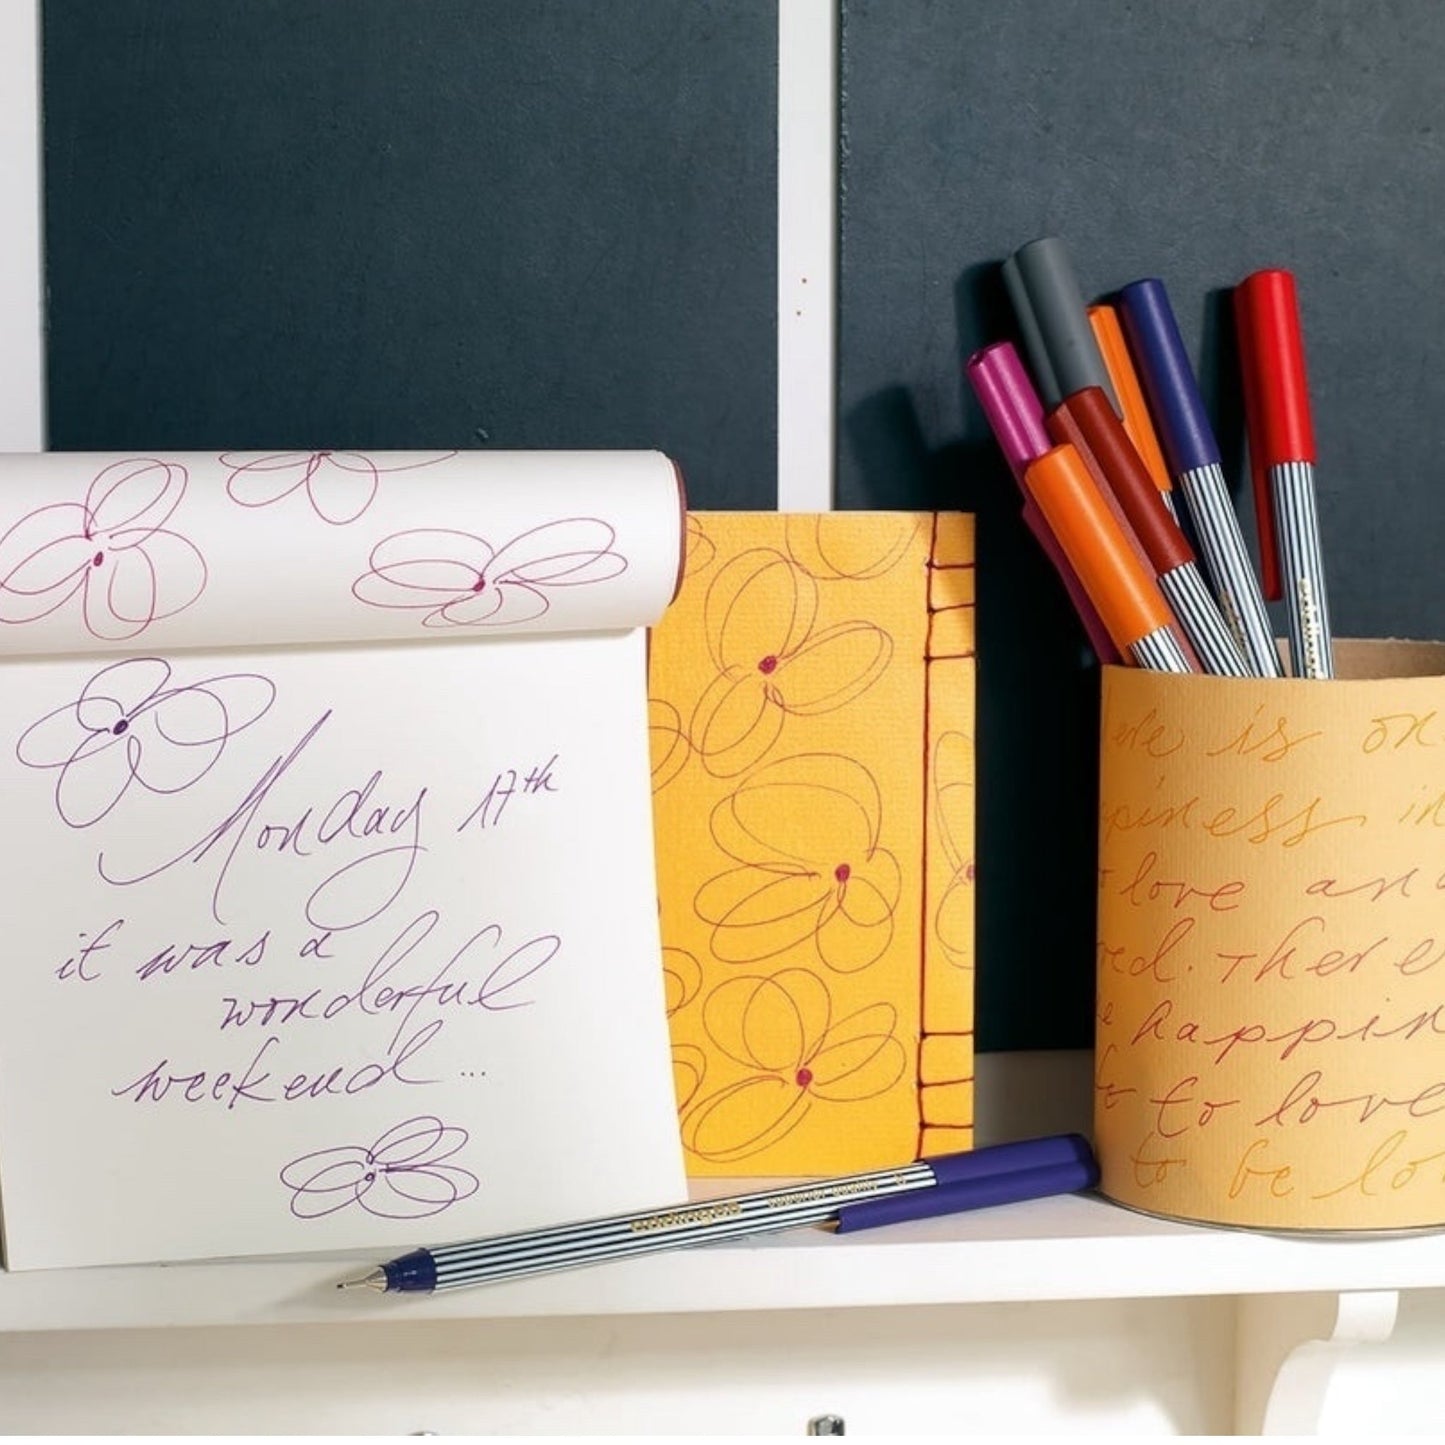 Monday 17th
it was a
wonderful
weekend...
is on
in
love and
There
happin
to love
to be lo